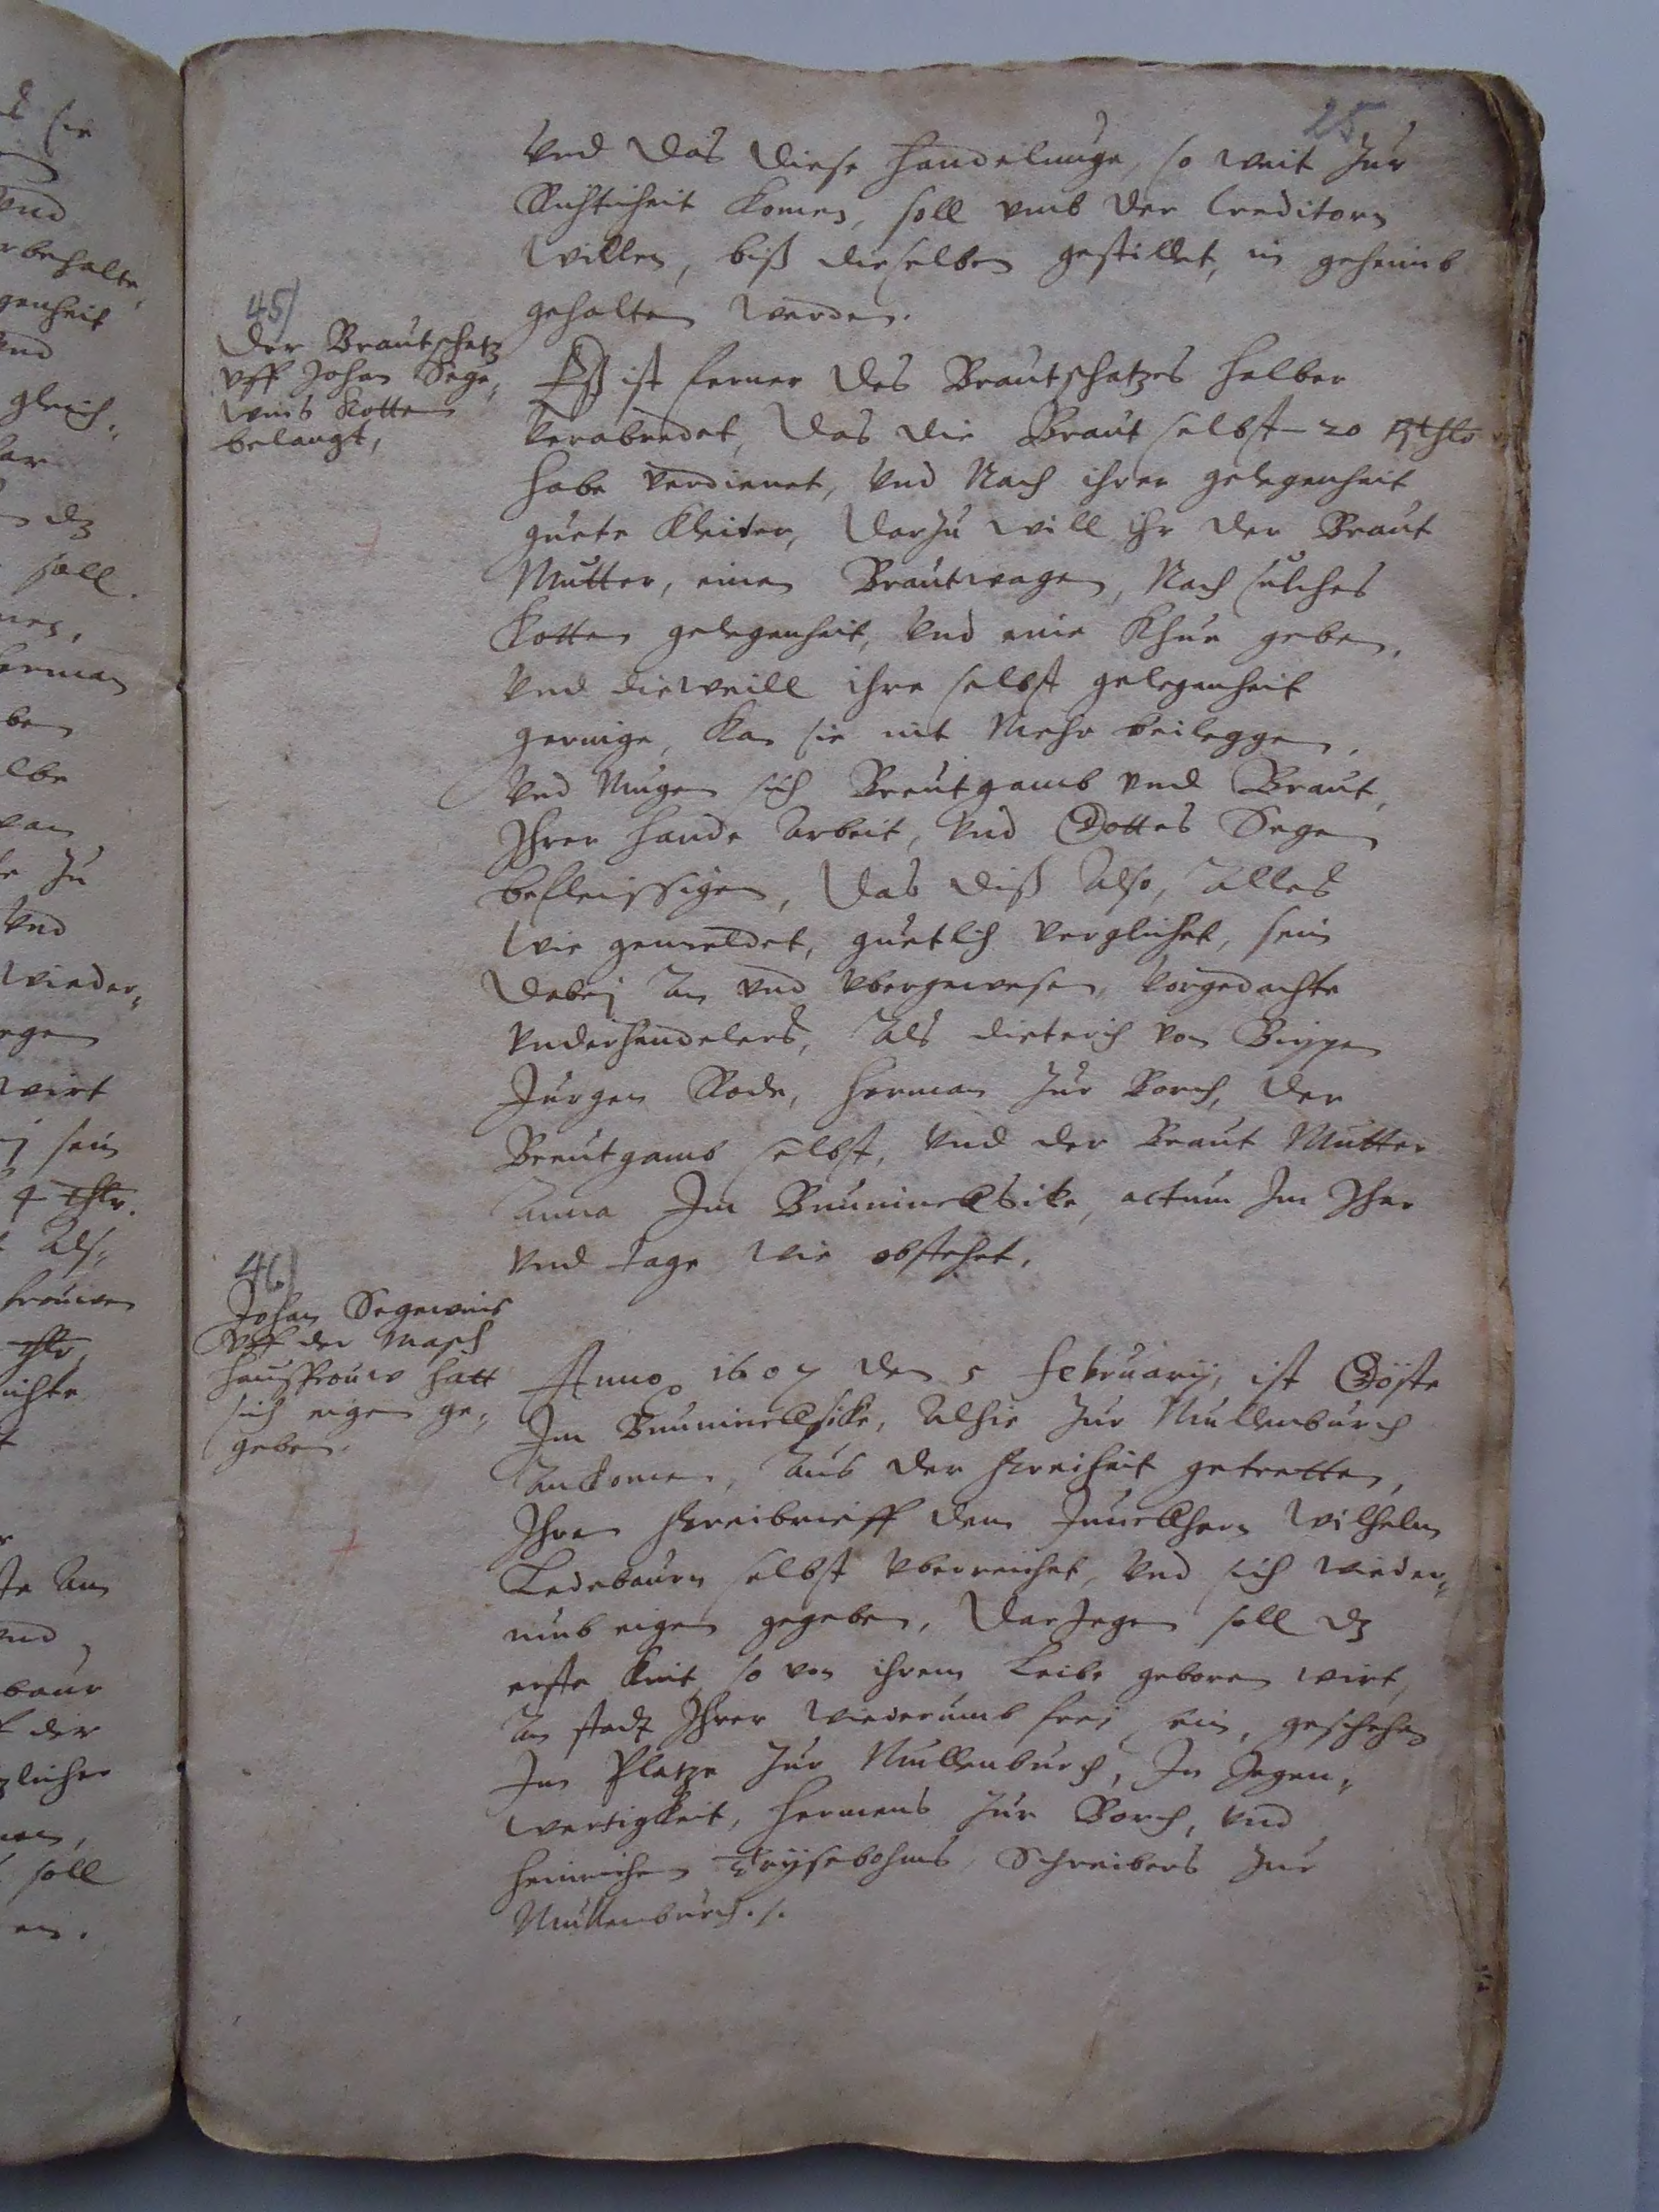 25
Vnd das diese handelunge, so weit zur
Richticheit komen, soll vmb der Creditorn
willen, biß dieselben gestillet, in geheimb
gehalten werden.
45)
Der Brautschatz
vff Johan Sege„
wins Kotten
belangt,
Eß ist ferner des Brautschatzes halber
verabredet, das die Braut selbst 20 Rthlr
habe verdienet, vnd Nach ihrer gelegenheit
guete Kleider, darzu will ihr der Braut
Mutter, einen Brautwagen, Nach sulches
Kotten gelegenheit, vnd eine Khue geben,
vnd dieweill ihre selbst gelegenheit
geringe, kan sie nit Mehr beileggen,
vnd Mugen sich Breutgamb vnd Braut,
Ihrer hande Arbeit, vnd Gottes Segen
befleissigen, das diß Also, Alles
wie gemeldet, guetlich verglichet, sein
dabej An vnd vbergewesen, vorgedachte
vnderhandelers, Als dieterich von
Jurgen Rode, Herman zur Borch, der
Breutgamb selbst, vnd der Braut Mutter
Anna Im actum Im Jhar
vnd tage wie obstehet.
46)
Johan Segewins
vff der Masch
hausfrouw hatt
sich eigen ge„
geben.
Anno 1607 den 5 February, ist Göste
Im Alhie zur Mullenburch
Ankomen, Aus der freiheit getretten,
Ihren freibrieff dem Junckhern Wilhelm
Ledebaurn selbst vberreichet, vnd sich wieder„
umb eigen gegeben, darJegen soll dz
erste Kint so von ihrem Leibe geboren wirt,
An stadt Ihrer wiederumb frej sein, geschehen
Im Platze zur Mullenburch, In Jegen„
wertigkeit, Hermens zur Borch, vnd
Heinrichen Schreibers zur
Mullenburch. /.